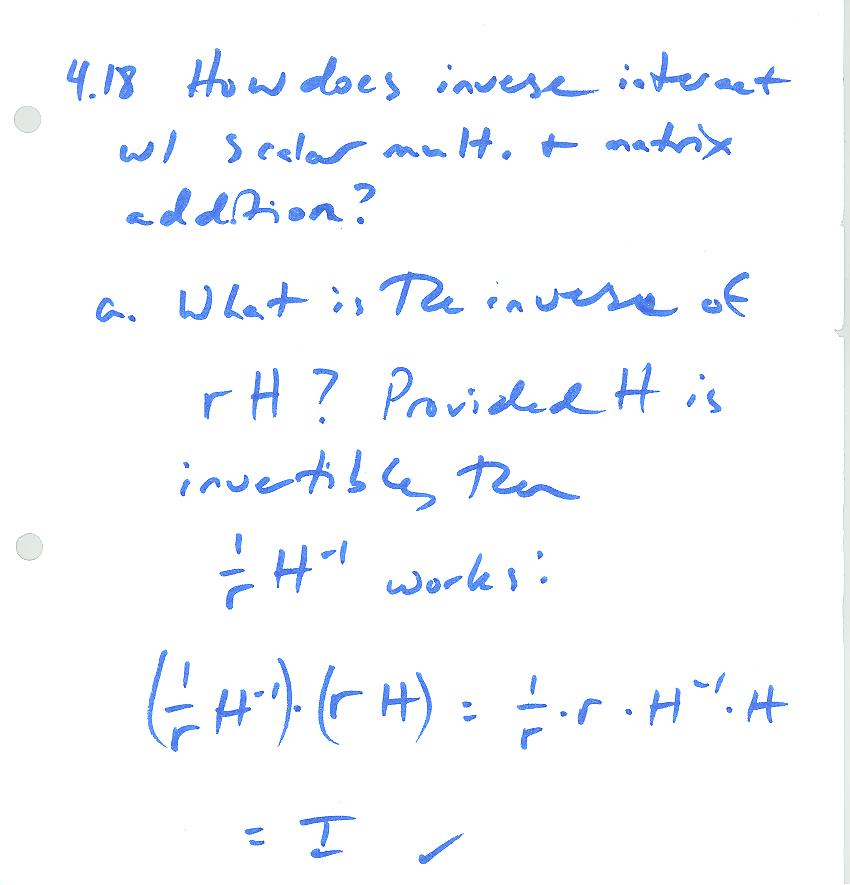 4.18 How does inverse interact
w/ scalar mult. + matrix
addition?
a. What is the inverse of
r H? Provided H is
invertible, then
1/r H⁻¹ works:
(1/r H⁻¹)·(r H) = 1/r · r · H⁻¹ · H
= I ✓